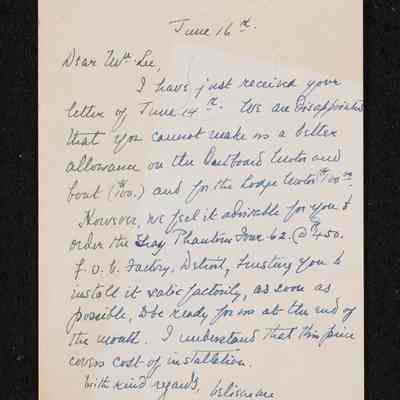 June 16th.
Dear Mr Lee,
I have just received your
letter of June 14th. We are disappointed
that you cannot make us a better
allowance on the Outboard Motor and
boat ($100.) and for the Dodge Motor $100.00.
However, we feel it advisable for you to
order the Gray Phantom Four 62. @ $450.
f. o. b. Factory, Detroit, trusting you to
install it satisfactorily, as soon as
possible, to be ready for us at the end of
the month. I understand that this price
covers cost of installation.
With kind regards, believe me